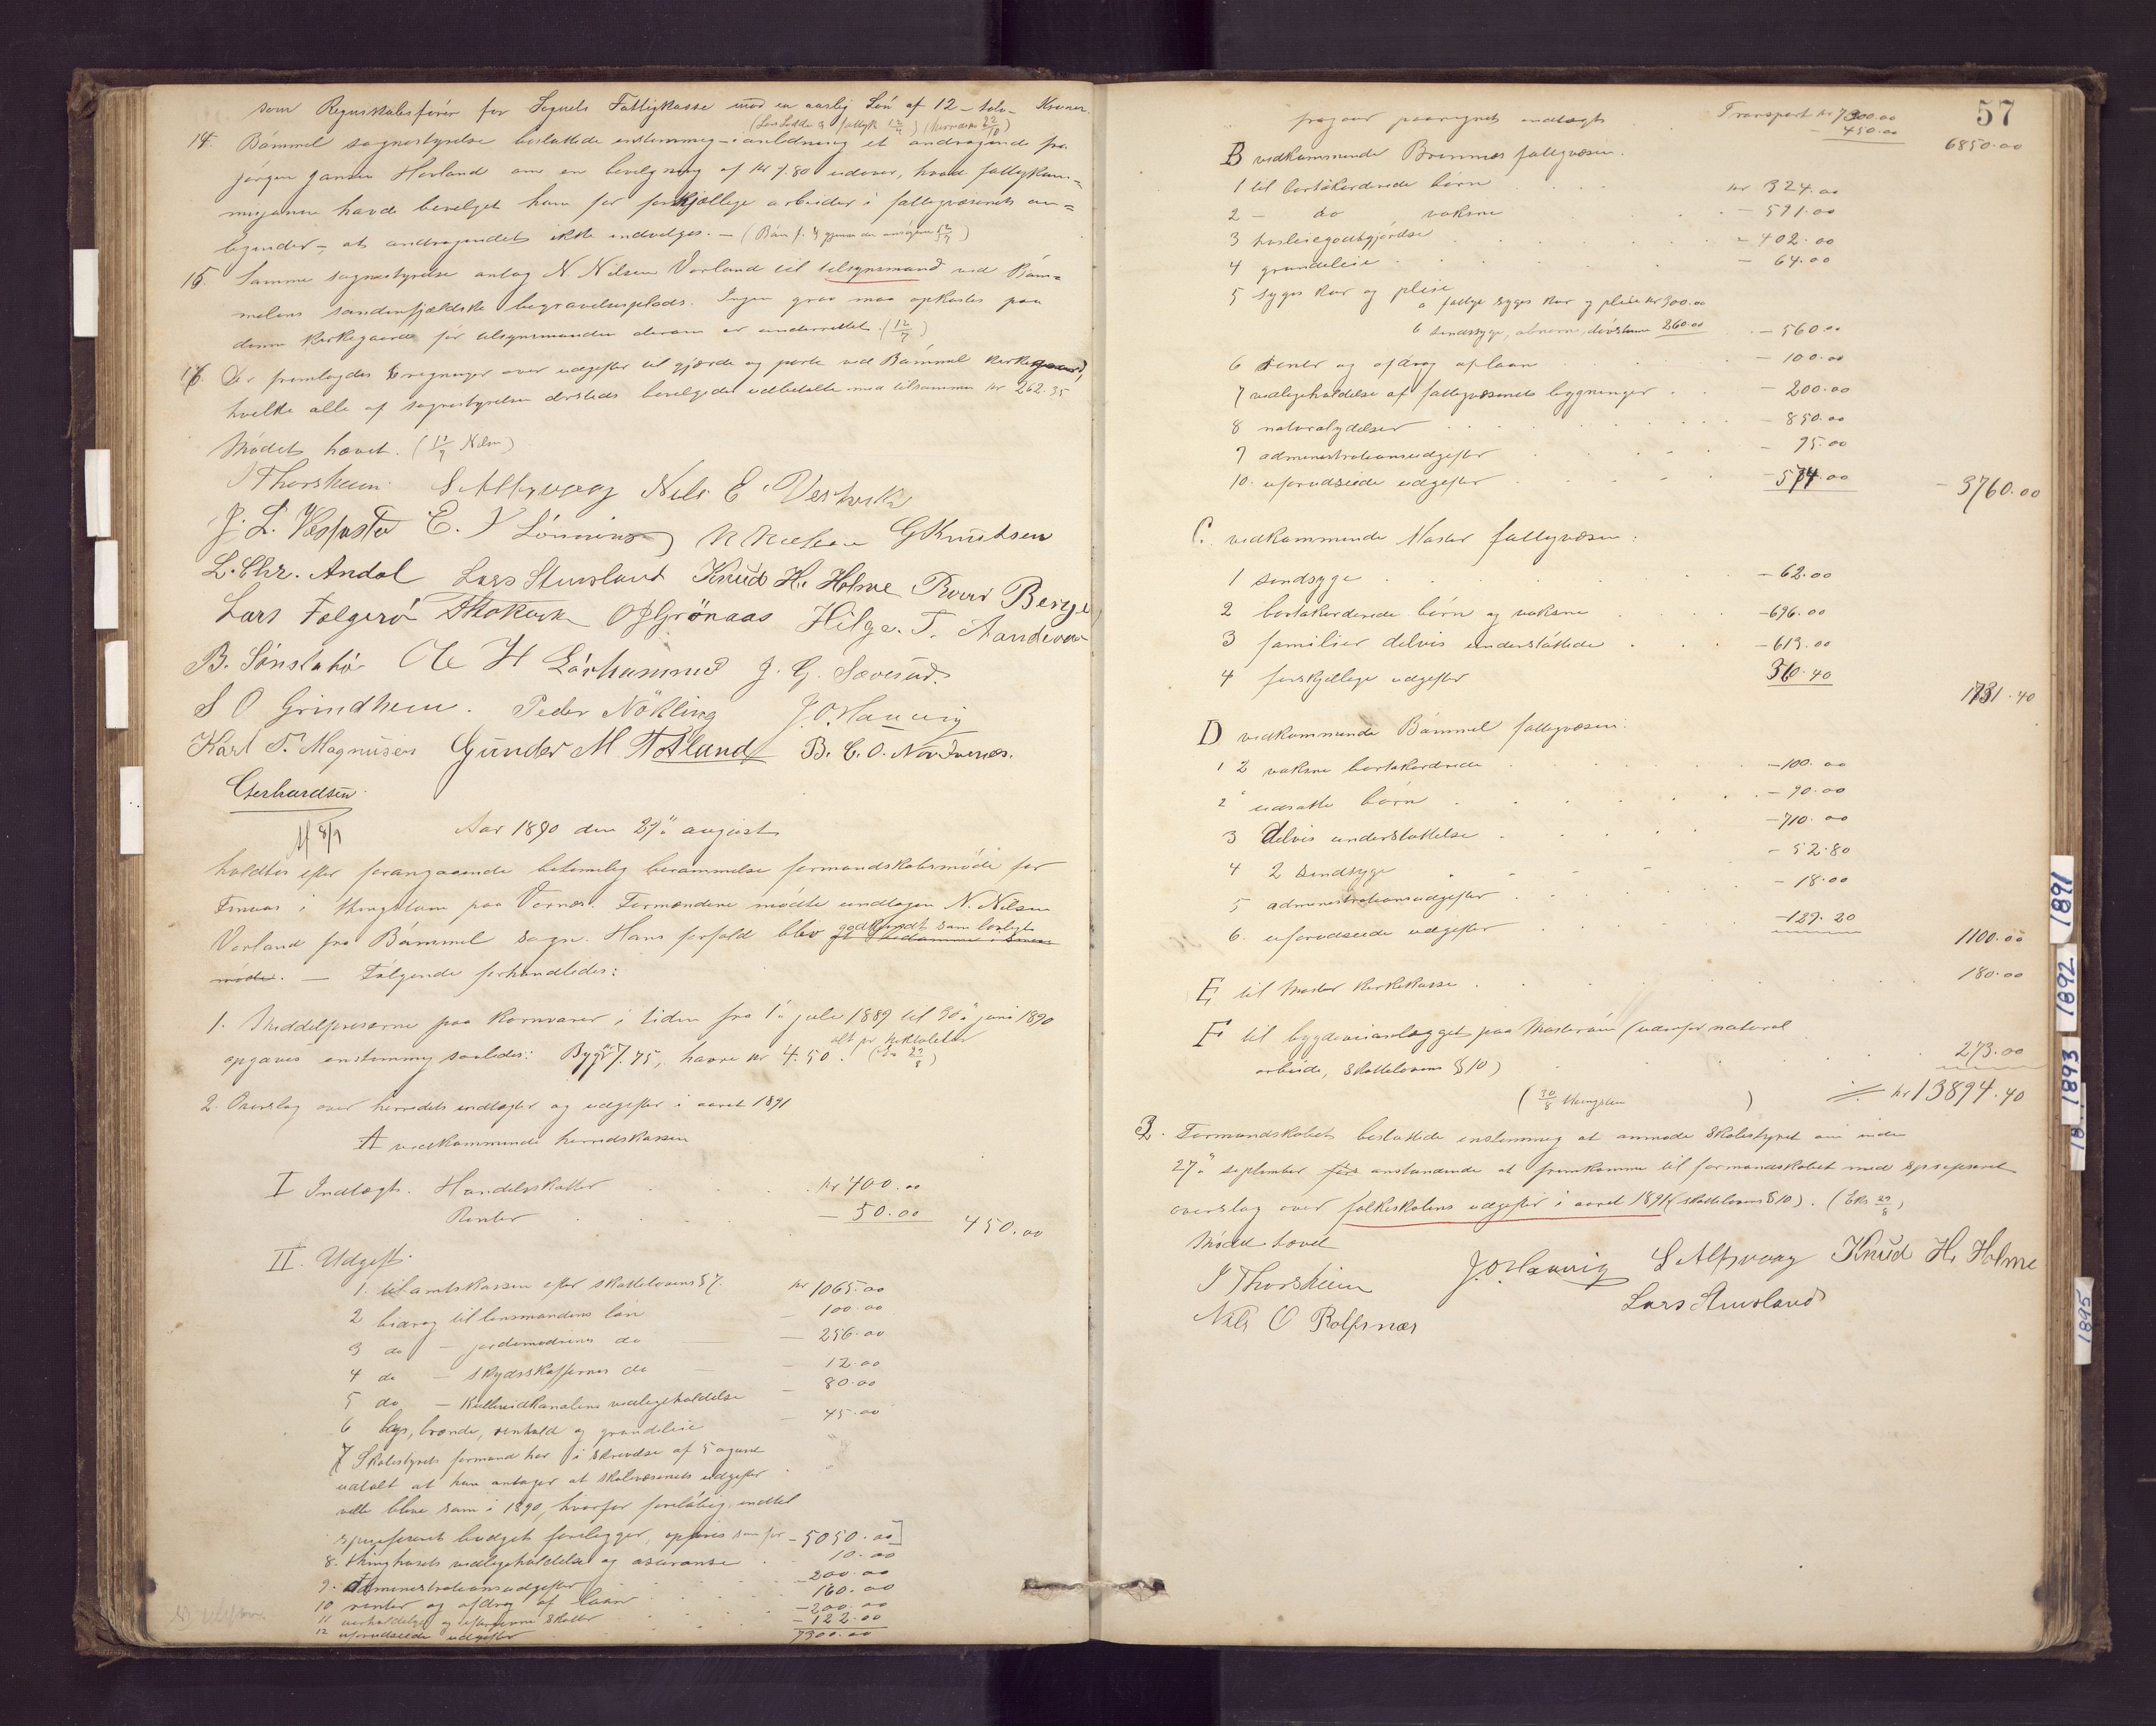 som Regnskabsfører for Sognets Fattigkasse mod en aarlig Løn af 12 - tolv - Kroner.
14. Bømmel sognestyrelse besluttede enstemmig - i anledning et andragende fra
Jørgen Jansen Hovland om en bevilgning af kr 7.80 udover, hvad fattigkom=
misjonen havde bevilget ham for forskjellige arbeider i fattigvæsenets an=
ligender, - at andragendet ikke indvilges. -
15. Samme sognestyrelse antog N Nilsen Vorland til tilsynsmand ved Bøm=
melens søndenfjeldske begravelsesplads. Ingen grav maa opkastes paa
denne kirkegaard før tilsynsmanden derom er underrettet. (12/9)
16. Der fremlagdes 6 regninger over udgifter til gjærde og porte ved Bømmel kirkegaard,
hvilke alle af sognestyrelsen dersteds bevilgedes udbetalte med tilsammen kr 262.35
Mødet hævet.
J Thorsheim S Alfsvaag Nils E. Vestvik
J. L. Vespestad E. N Lønning N Nielsen G Knudsen
L. Chr. Andal Lars Stusland Knud H. Holme Roar Berge
Lars Folgerø O J Grønaas Helge. T. Aandevaag
B. Sønstabø Ole H Lørhammer J. G. Sæverud.
S O Grindheim. Peder Nøkling J. O. Hauvig
Karl T. Magnusen Gunder M. Totland B. C. O. Nordtveræs.
Gerhardsen.
Aar 1890 den 27de august
holdtes efter forangaaende betimelig berammelse formandskabsmøde for
Finnaas i thingstuen paa Vornæs. Formændene mødte undtagen N. Nilsen
Vorland fra Bømmel sogn. Hans forfald blev godkjendt som lovligt
møde. - Følgende forhandledes:
1. Middelpriserne paa kornvarer i tiden fra 1ste juli 1889 til 30te juni 1890
opgaves enstemmig saaledes: Byg kr 7.75, havre kr 4.50. alt pr hektoliter
2. Overslag over herredets indtægter og udgifter i aaret 1891
A vedkommende herredskassen
I Indtægt. Handelsskatter kr 400.00
Renter - 50.00 450.00
II. Udgift.
1. til amtskassen efter skattelovens § 7. kr 1065.00
2 bidrag til lensmandens løn - 100.00
3 do - jordemødrenes do - 256.00
4 do - skydsskaffernes do - 12.00
5 do - Kulleseidkanalens vedligeholdelse - 80.00
6 lys, brænde, renhold og grundleie - 45.00
7 Skolestyrets formand har i skrivelse af 5 august
udtalt at han antager at skolevæsenets udgifter
ville blive som i 1890, hvorfor foreløbig indtil
specificeret budget foreligger, opføres som før - 5050.00]
8. thinghusets vedligeholdelse og assuranse 10.00
9. Administrationsudgifter - 200.00
10 renter og afdrag af laan 160.00
11 - 200.00
12 uforudseede udgifter - 122.00
7300.00
57
fragaar paaregnet indtægt Transport kr 7300.00
- 450.00 6850.00
B vedkommende Bremnes fattigvæsen.
1 til bortakorderede børn kr 324.00
2 - do voksne - 591.00
3 husleiegodtgjørelse - 402.00
4 grundleie - 64.00
5 syges kur og pleie
a fattige syges kur og pleie kr 300.00
b sindssyge, abnorme, døvstumme 260.00 - 560.00
6 renter og afdrag af laan - 100.00
7 vedligeholdelse af fattigvæsenets bygninger - 200.00
8 naturalydelser - 850.00
9 administrationsudgifter - 95.00
10. uforudseede udgifter - 574.00 - 3760.00
C. vedkommende Moster fattigvæsen:
1 sindsyge - 62.00
2 bortakorderede børn og voksne - 696.00
3 familier delvis understøttede - 613.00
4 forskjellige udgifter 360.40 1731.40
D vedkommende Bømmel fattigvæsen:
1 2 voksne bortakorderede - 100.00
2 udsatte børn - 90.00
3 Delvis understøttelse - 710.00
4 2 sindsyge - 52.80
5 administrationsudgifter - 18.00
6. uforudseede udgifter - 129.20 1100.00
E til Moster kirkekasse 180.00
F til bygdeveianlægget paa Mosterøen (udenfor natural
arbeide, skattelovens § 10) 273.00
(30/8 ) kr 13894.40
3. Formandskabet besluttede enstemmig at anmode skolestyret om inden
27de september førstkommende at fremkomme til formandskabet med specificeret
overslag over folkeskolens udgifter i aaret 1891 (skattelovens § 10).
Mødet hævet
J Thorsheim J. O. Hauvig S Alfsvaag Knud H. Holme
Nils O Rolfsnæs Lars Stusland
1891
1892
1893
1895